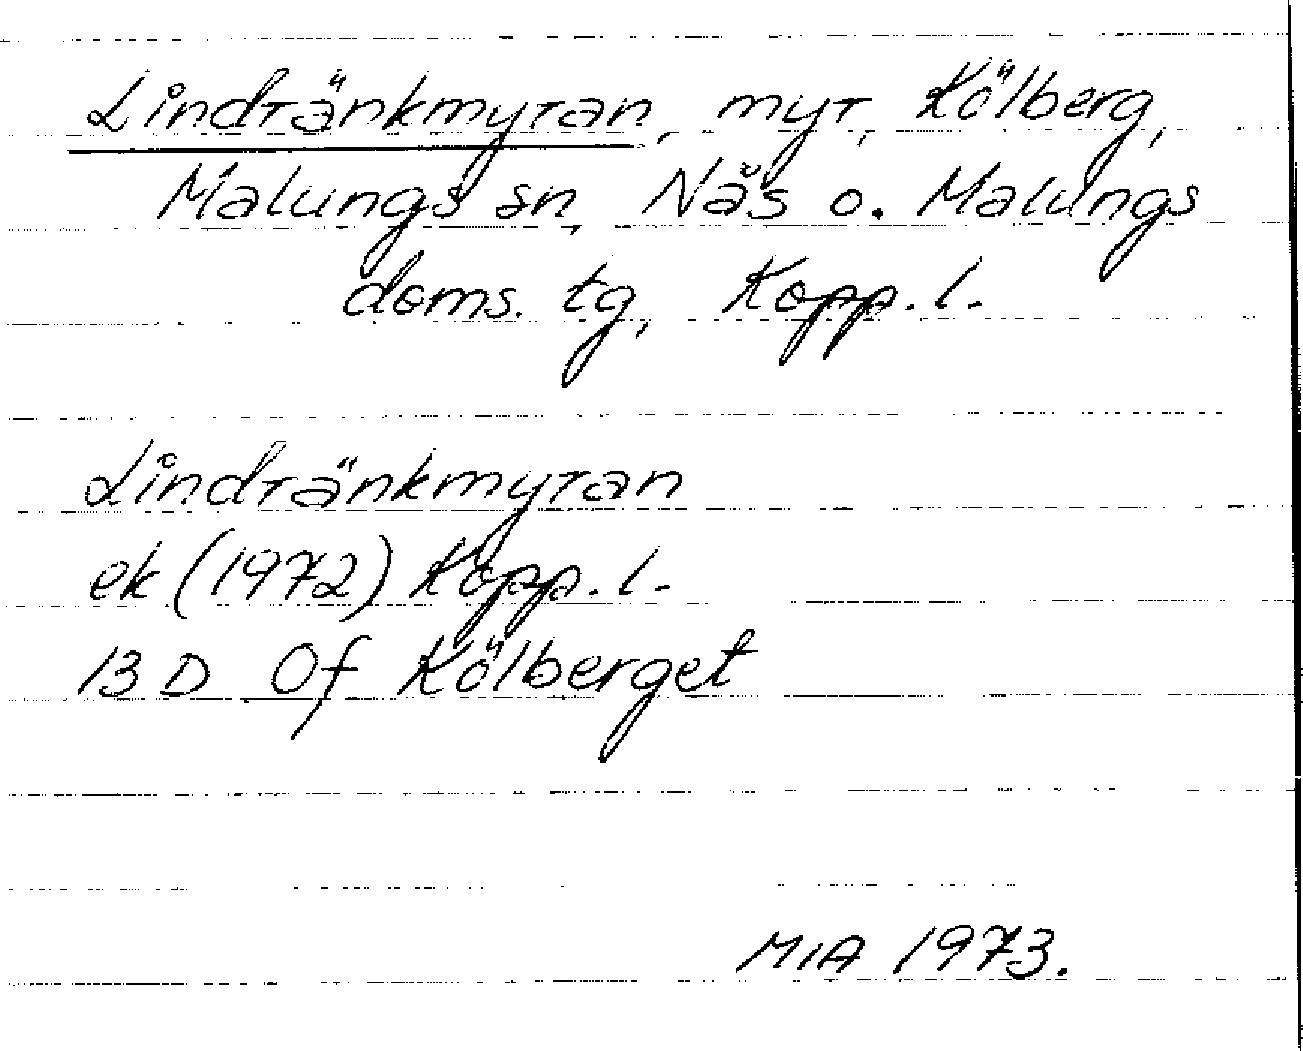 Lindränkmyran, myr, Kölberg,
Malungs sn, Näs o. Malungs
doms. tg, Kopp. l.
Lindränkmyran
ek (1972) Kopp. l.
13 D Of Kölberget
MIA 1973.